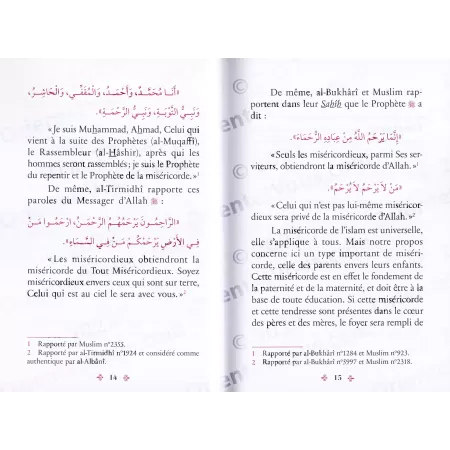 «أَنَا مُحَمَّدٌ، وَأَحْمَدُ، وَالْمُقَفِّي، وَالْحَاشِرُ،
وَنَبِيُّ التَّوْبَةِ، وَنَبِيُّ الرَّحْمَةِ».
« Je suis Muhammad, Ahmad, Celui qui
vient à la suite des Prophètes (al-Muqaffi),
le Rassembleur (al-Hâshir), après qui les
hommes seront rassemblés ; je suis le Prophète
du repentir et le Prophète de la miséricorde. »¹
De même, al-Tirmidhî rapporte ces
paroles du Messager d'Allah ﷺ :
«الرَّاحِمُونَ يَرْحَمُهُمُ الرَّحْمَنُ، ارْحَمُوا مَنْ
فِي الأَرْضِ يَرْحَمْكُمْ مَنْ فِي السَّمَاءِ».
« Les miséricordieux obtiendront la
miséricorde du Tout Miséricordieux. Soyez
miséricordieux envers ceux qui sont sur terre,
Celui qui est au ciel le sera avec vous. »²
1 Rapporté par Muslim n°2355.
2 Rapporté par al-Tirmidhî n°1924 et considéré comme
authentique par al-Albânî.
14
De même, al-Bukhârî et Muslim rap-
portent dans leur Sahîh que le Prophète ﷺ a
dit :
«إِنَّمَا يَرْحَمُ اللَّهُ مِنْ عِبَادِهِ الرُّحَمَاءَ».
« Seuls les miséricordieux, parmi Ses ser-
viteurs, obtiendront la miséricorde d'Allah. »¹
«مَنْ لَا يَرْحَمْ لَا يُرْحَمْ».
« Celui qui n'est pas lui-même miséricor-
dieux sera privé de la miséricorde d'Allah. »²
La miséricorde de l'islam est universelle,
elle s'applique à tous. Mais notre propos
concerne ici un type important de miséri-
corde, celle des parents envers leurs enfants.
Cette miséricorde est en effet le fondement de
la paternité et de la maternité, et doit être à la
base de toute éducation. Si cette miséricorde
et cette tendresse sont présentes dans le cœur
des pères et des mères, le foyer sera rempli de
1 Rapporté par al-Bukhârî n°1284 et Muslim n°923.
2 Rapporté par al-Bukhârî n°5997 et Muslim n°2318.
15